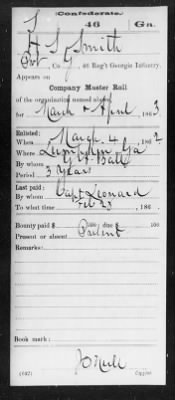 S
Confederate.
46
Ga.
H S Smith
Pvt, Co. G, 46 Reg't Georgia Infantry.
Appears on
Company Muster Roll
of the organization named above,
for March & April, 1863
Enlisted:
When March 4, 1862
Where Lumpkin Ga
By whom Ball
Period 3 years
Last paid:
By whom Capt Leonard
To what time Feb 28, 186 .
Bounty paid $ 100; due $ 100
Present or absent Present
Remarks:
Book mark:
(642)
Copyist.